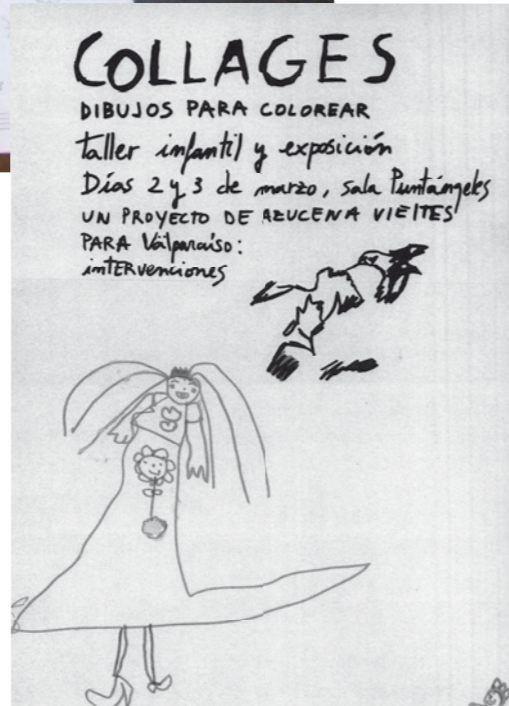 COLLAGES
DIBUJOS PARA COLOREAR
taller infantil y exposición
Días 2 y 3 de marzo, sala Puntángeles
UN PROYECTO DE AZUCENA VIEITES
PARA Valparaíso:
intERVENCIONES